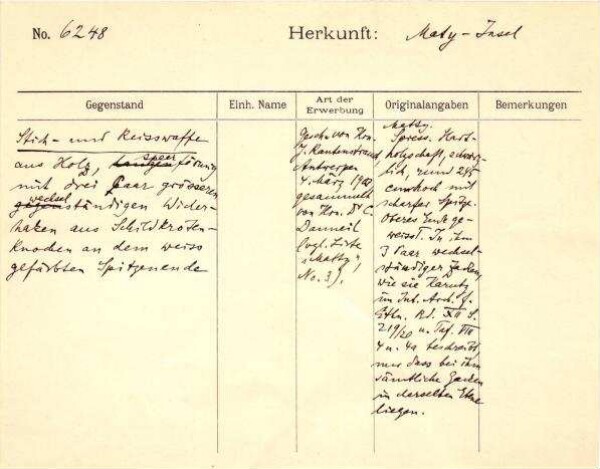 No. 6248
Herkunft: Maty-Insel
Gegenstand
Einh. Name
Art der Erwerbung
Originalangaben
Bemerkungen
Stich- und Reisswaffe
aus Holz, speerförmig
mit drei Paar grösseren
wechselständigen Wider-
haken aus Schildkröten-
knochen an dem weiss
gefärbten Spitzenende
Gesch. von Hrn.
J. Rautenstrauch
Antwerpen
4. März 1902
gesammelt
von Hrn. Dr C.
Danneil
(vgl. Liste
"Matty",
No. 3).
Matty.
Speess. Hart-
holzschaft, schwärz-
lich, rund 245
cm hoch mit
scharfer Spitze
Oberes Ende ge-
weisst. In ihm
3 Paar wechsel-
ständiger Zacken,
wie sie Karutz
im Int. Arch. f.
Ethn. Bd. XII S.
219/20 u. Taf. VIII
4 u. 4a beschreibt,
nur dass bei ihm
sämtliche Zacken
in derselben Ebene
liegen.